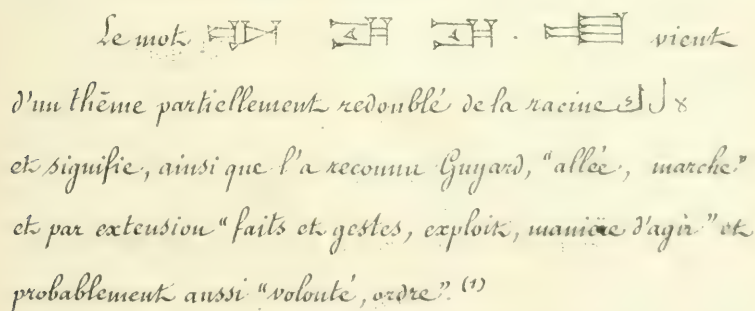 Le mot vient
d'un thème partiellement redoublé de la racine ه ل ك
et signifie, ainsi que l'a reconnu Guyard, "allée, marche"
et par extension "faits et gestes, exploit, manière d'agir" et
probablement aussi "volonté, ordre". (1)